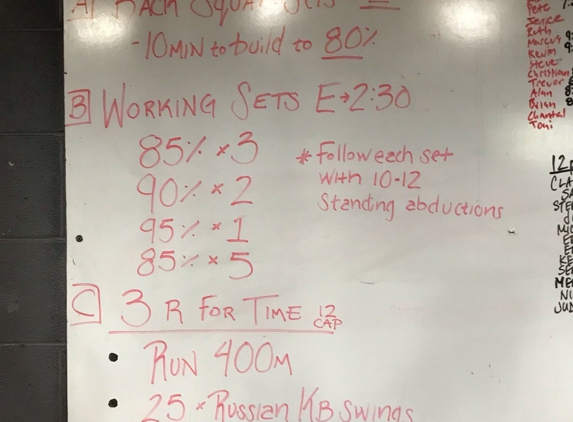 A) BACK SQUAT SETS
-10MIN to build to 80%
B WORKING SETS E→2:30
85% × 3
90% × 2
95% × 1
85% × 5
* Follow each set
with 10-12
Standing abductions
C 3 R FOR TIME 12
CAP
• RUN 400M
• 25 × Russian KB swings
Pete
Jenice
Ruth
Marcus
Kevin
Steve
Christian
Trevor
Alan
Brian
Chantal
Toni